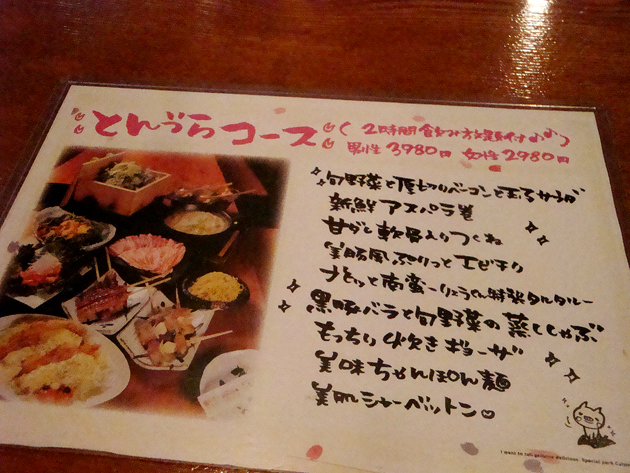 とんづらコース
(2時間飲み放題付♪♪)
男性3980円 女性2980円
旬野菜と厚切りベーコンと玉子サラダ
新鮮アスパラ巻
甘辛し軟骨入りつくね
美肌風ぷりっとエビチリ
チキン南蛮 特製タルタル
黒豚バラと旬野菜の蒸ししゃぶ
もっちり炊きギョーザ
美味ちゃんぽん麺
美肌シャーベットン
I want to talk genuine delicious. Special pork